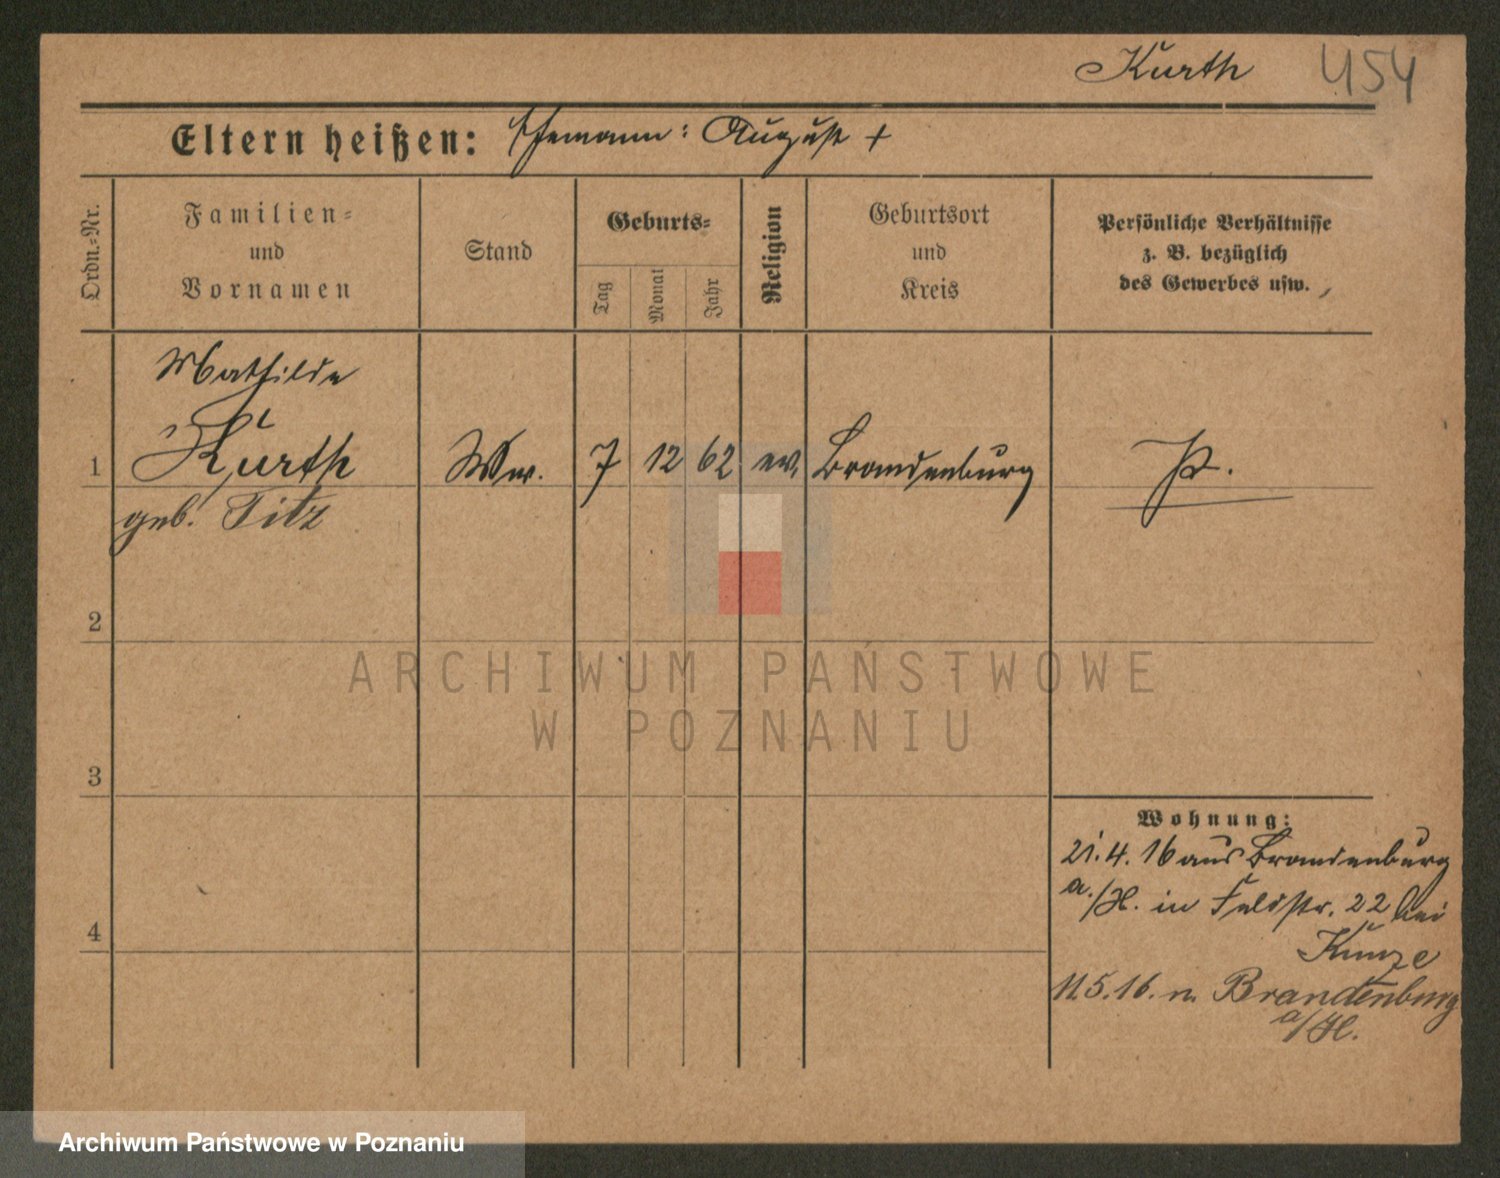 Kurth 454
Eltern heißen: Ehemann: August +
Ordn.=Nr.
Familien=
und
Vornamen
Stand
Geburts=
Tag
Monat
Jahr
Religion
Geburtsort
und
Kreis
Persönliche Verhältnisse
z. B. bezüglich
des Gewerbes usw.
Mathilde
1 Kurth Ww. 7 12 62 ev. Brandenburg P.
geb. Titz
2
ARCHIWUM PAŃSTWOWE
W POZNANIU
3
Wohnung:
21.4.16 aus Brandenburg
4 a./H. in Feldstr. 22 bei
Kunze
11.5.16. n. Brandenburg
a/H.
Archiwum Państwowe w Poznaniu